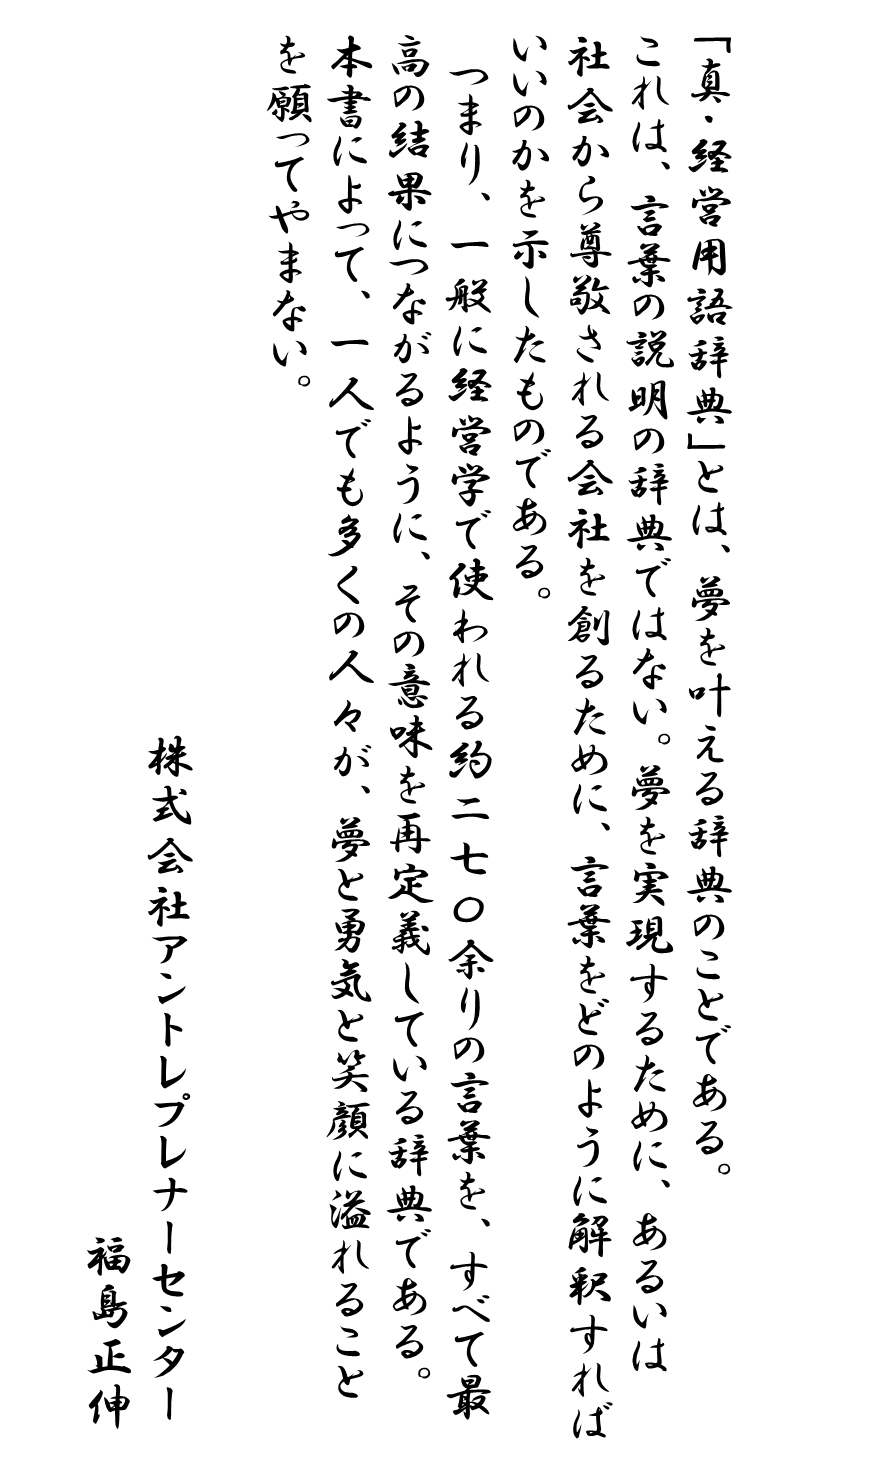 「真・経営用語辞典」とは、夢を叶える辞典のことである。
これは、言葉の説明の辞典ではない。夢を実現するために、あるいは
社会から尊敬される会社を創るために、言葉をどのように解釈すれば
いいのかを示したものである。
つまり、一般に経営学で使われる約二七〇余りの言葉を、すべて最
高の結果につながるように、その意味を再定義している辞典である。
本書によって、一人でも多くの人々が、夢と勇気と笑顔に溢れること
を願ってやまない。
株式会社アントレプレナーセンター
福島正伸